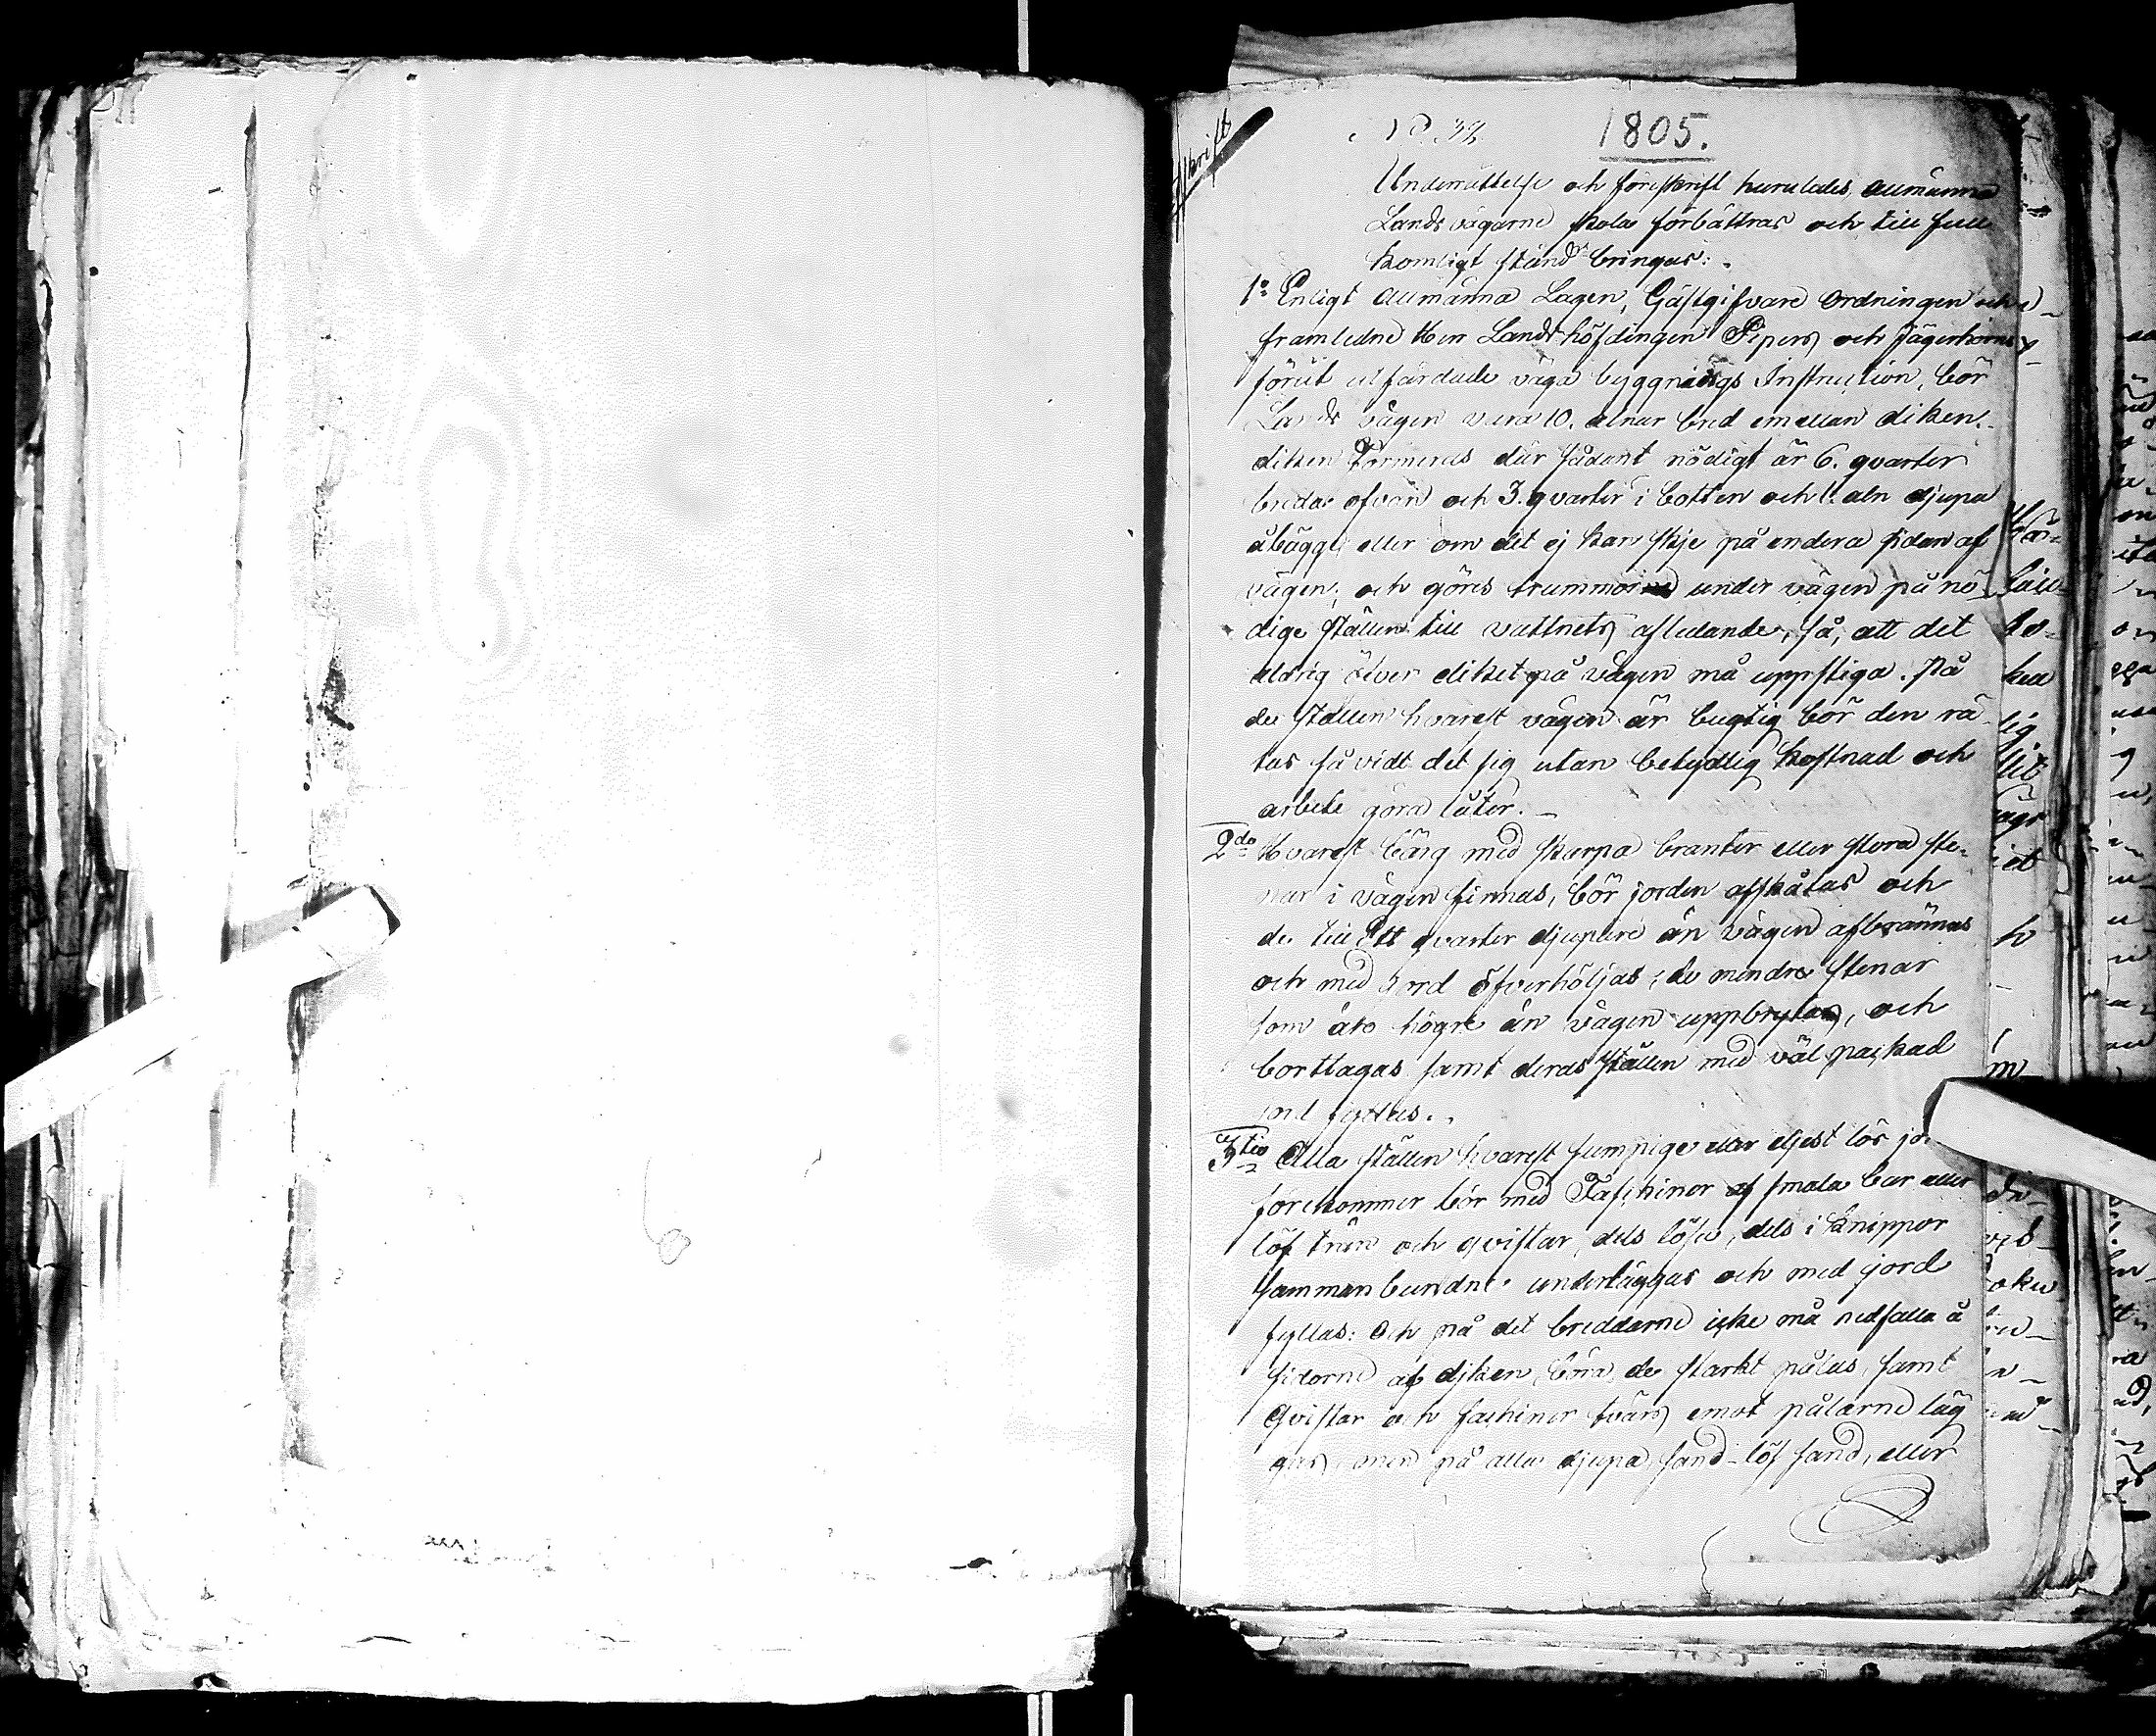 Afskrift
No 32
1805.
Underrättelse och föreskrift huruledes, allmänna
Lands vägarne skola förbättras och till full
komligt stånd bringas:.
1o Enligt allmänna Lagen, Gästgifvare Ordningen och
framledne Herr Landshöfdingen Pipers och Jägerhorns
förut utfärdade väga byggnads Instruction, bör
Lands vägen vara 10. alnar bred emellan diken.
diken Formeras där sådant nödigt är 6. qvarter
breda ofvan och 3. qvarter i botten och 1. aln djupa
å bägge eller om det ej kan skje på endera sidan af
vägen; och göres trummor under vägen på nö-
dige ställen till vattnets afledande, så, att det
aldrig öfver diket på vägen må uppstiga. På
de ställen hvarest vägen är bugtig bör den rä-
tas så vidt det sig utan betydlig kostnad och
arbete göra låter. -
2do Hvarest bärg med skarpa branter eller stora ste-
nar i vägen finnas, bör jorden afskålas och
de till Ett qvarter djupare än vägen afbrännas
och med jord öfverhöljas; de mindre stenar
som äro högre än vägen uppbrytas, och
borttagas samt deras ställen med väl packad
jord fyllas..
3tio Alla ställen hvarest sumpige eller eljest lös
förekommer bör med Faschiner af smala bar eller
löf trän och qvistar, dels löse, dels i knippor
sammanbundne underläggas och med jord
fyllas: Och på det breddarne icke må nedfalla å
sidorne af diken, böra de starkt pålas, samt
Qvistar och faschiner tvärs emot pålarne läg
gas, men på alla djupa sand- lös sand, eller